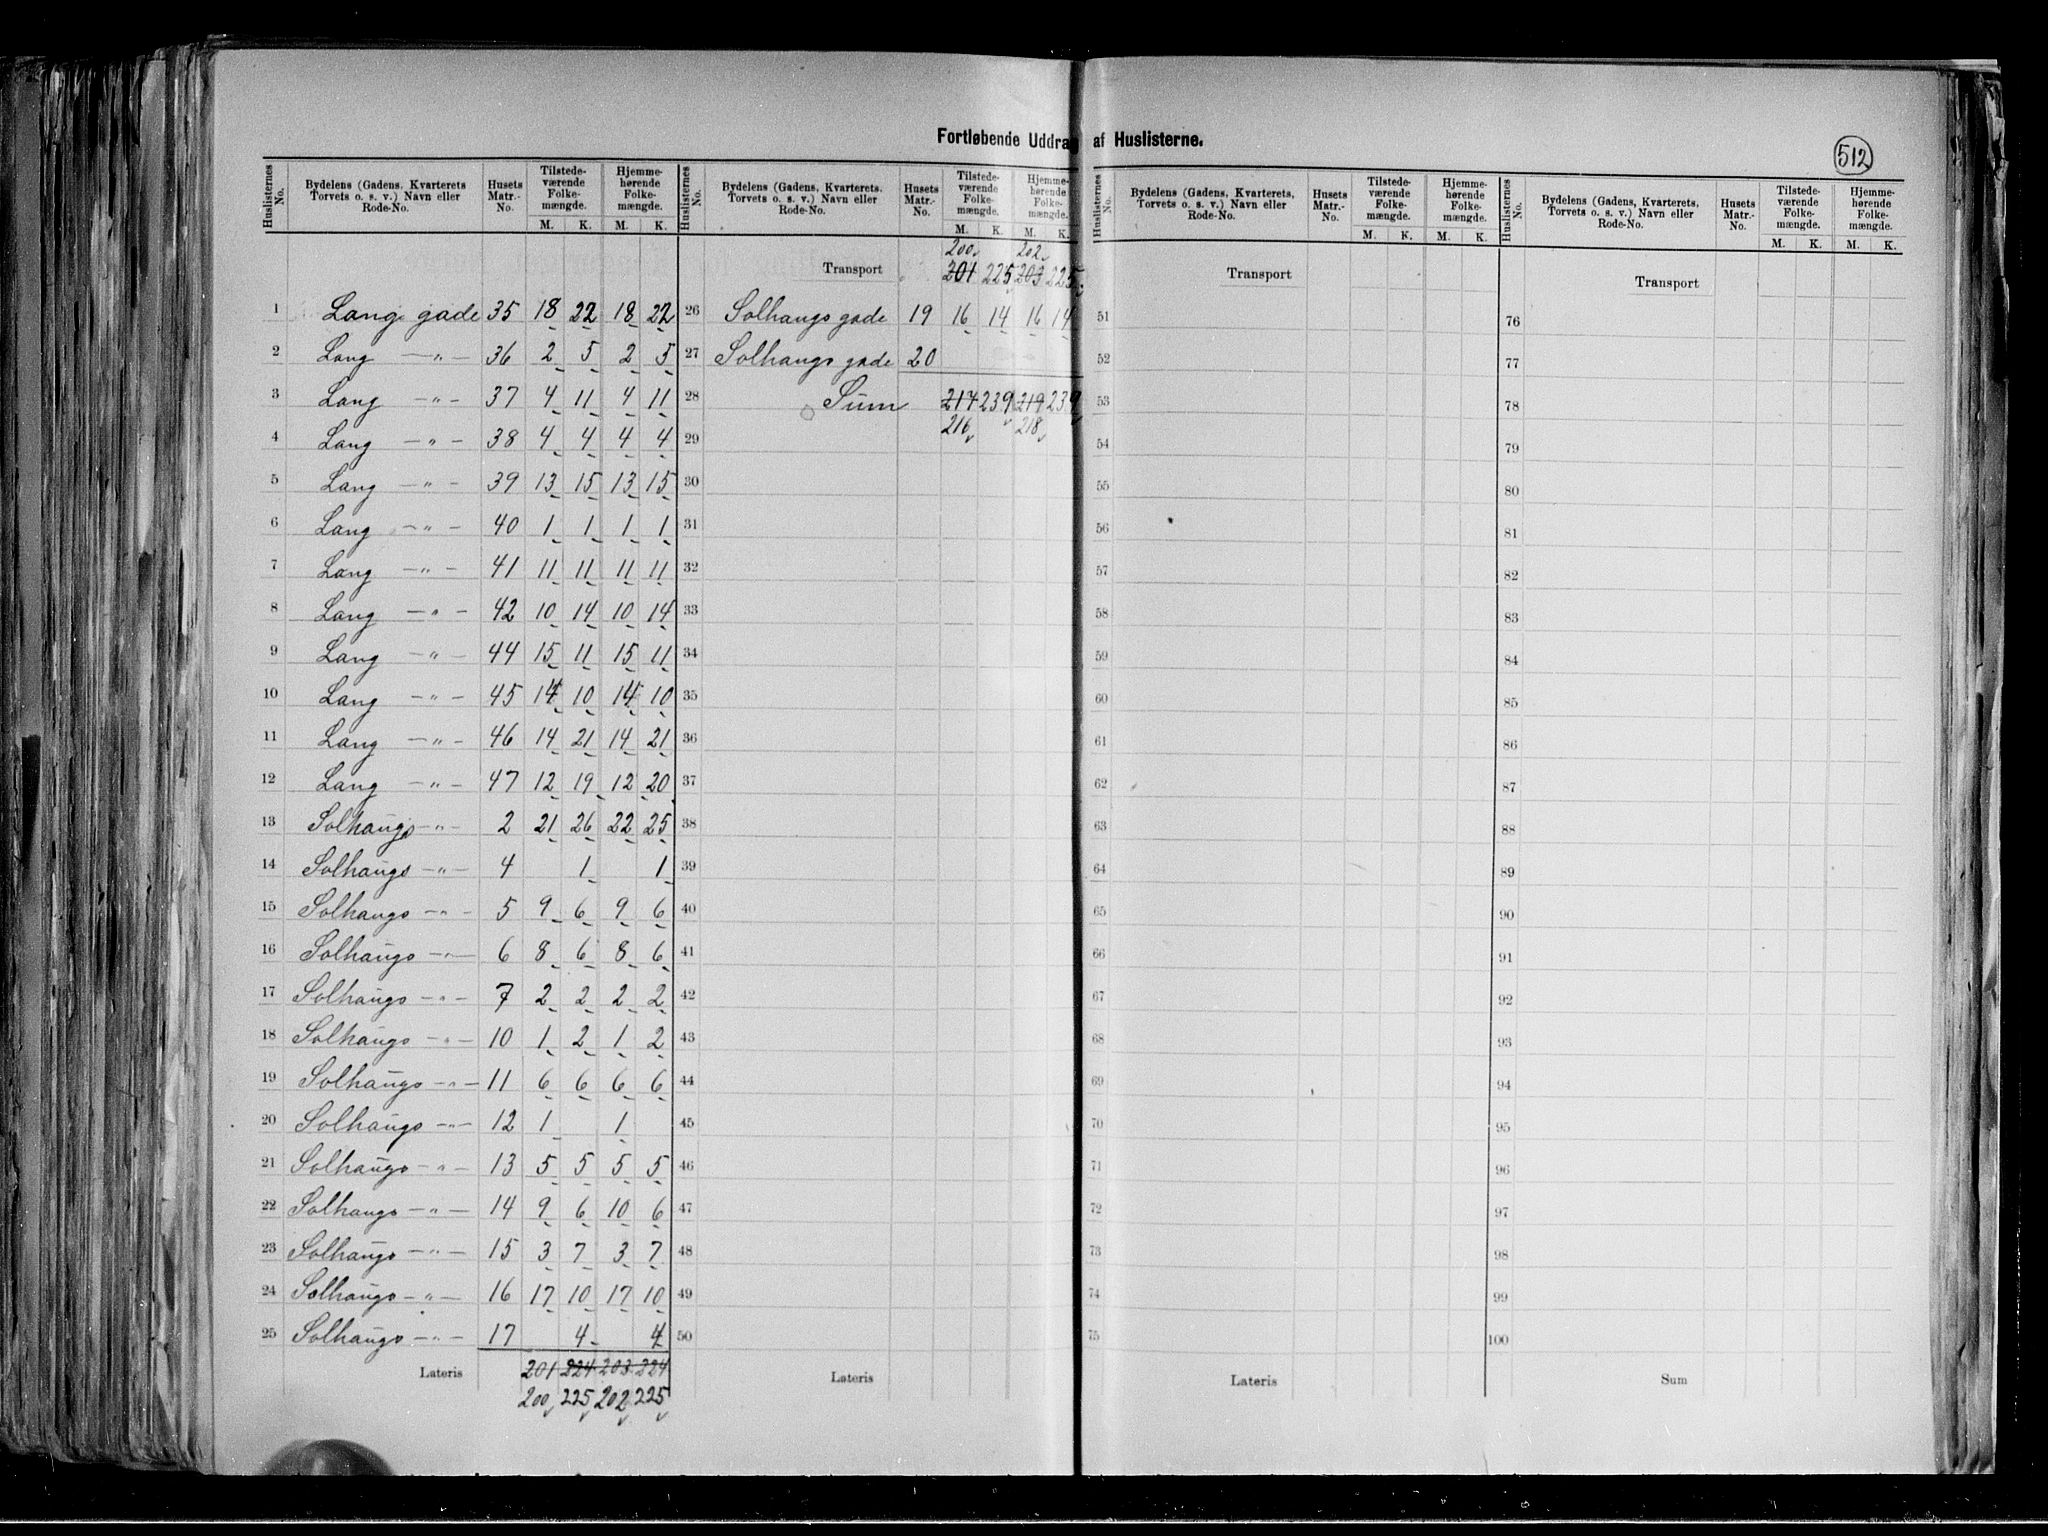 Fortløbende Uddrag af Huslisterne.
512
Huslisternes No. Bydelens (Gadens, Kvarterets Torvets o. s. v.) Navn eller Rode-No. Husets Matr.-No. Tilstede-værende Folke-mængde. M. K. Hjemme-hørende Folke-mængde. M. K.
1 Lang gade 35 18 22 18 22
2 Lang —"— 36 2 5 2 5
3 Lang —"— 37 4 11 4 11
4 Lang —"— 38 4 4 4 4
5 Lang —"— 39 13 15 13 15
6 Lang —"— 40 1 1 1 1
7 Lang —"— 41 11 11 11 11
8 Lang —"— 42 10 14 10 14
9 Lang —"— 44 15 11 15 11
10 Lang —"— 45 14 10 14 10
11 Lang —"— 46 14 21 14 21
12 Lang —"— 47 12 19 12 20
13 Solhaugs —"— 2 21 26 22 25
14 Solhaugs —"— 4 1 1
15 Solhaugs —"— 5 9 6 9 6
16 Solhaugs —"— 6 8 6 8 6
17 Solhaugs —"— 7 2 2 2 2
18 Solhaugs —"— 10 1 2 1 2
19 Solhaugs —"— 11 6 6 6 6
20 Solhaugs —"— 12 1 1
21 Solhaugs —"— 13 5 5 5 5
22 Solhaugs —"— 14 9 6 10 6
23 Solhaugs —"— 15 3 7 3 7
24 Solhaugs —"— 16 17 10 17 10
25 Solhaugs —"— 17 4 4
Lateris 201 224 203 224
200 225 202 225
Huslisternes No. Bydelens (Gadens, Kvarterets. Torvets o. s. v.) Navn eller Rode-No. Husets Matr.-No. Tilstede-værende Folke-mængde. M. K. Hjemme-hørende Folke-mængde. M. K.
200 202
Transport 201 225 203 225
26 Solhaugs gade 19 16 14 16 14
27 Solhaugs gade 20
28 Sum 217 239 219 239
29 216 218
30
31
32
33
34
35
36
37
38
39
40
41
42
43
44
45
46
47
48
49
50
Lateris
Huslisternes No. Bydelens (Gadens, Kvarterets, Torvets o. s. v.) Navn eller Rode-No. Husets Matr.-No. Tilstede-værende Folke-mængde. M. K. Hjemme-hørende Folke-mængde. M. K.
Transport
51
52
53
54
55
56
57
58
59
60
61
62
63
64
65
66
67
68
69
70
71
72
73
74
75
Lateris
Huslisternes No. Bydelens (Gadens, Kvarterets, Torvets o. s. v.) Navn eller Rode-No. Husets Matr.-No. Tilstede-værende Folke-mængde. M. K. Hjemme-hørende Folke-mængde. M. K.
Transport
76
77
78
79
80
81
82
83
84
85
86
87
88
89
90
91
92
93
94
95
96
97
98
99
100
Sum